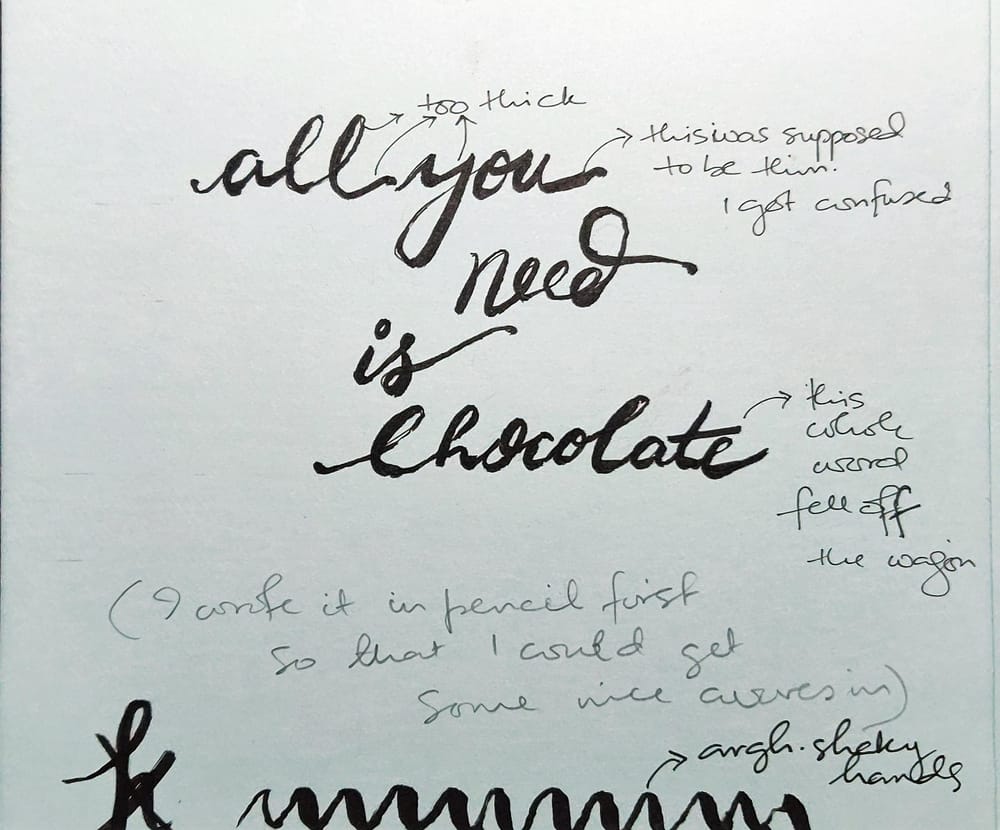 too thick
all you
this was supposed
to be thin.
I got confused
need
is
chocolate
this
whole
word
fell off
the wagon
(I wrote it in pencil first
so that I could get
some nice curves in)
argh. shaky
hands
k